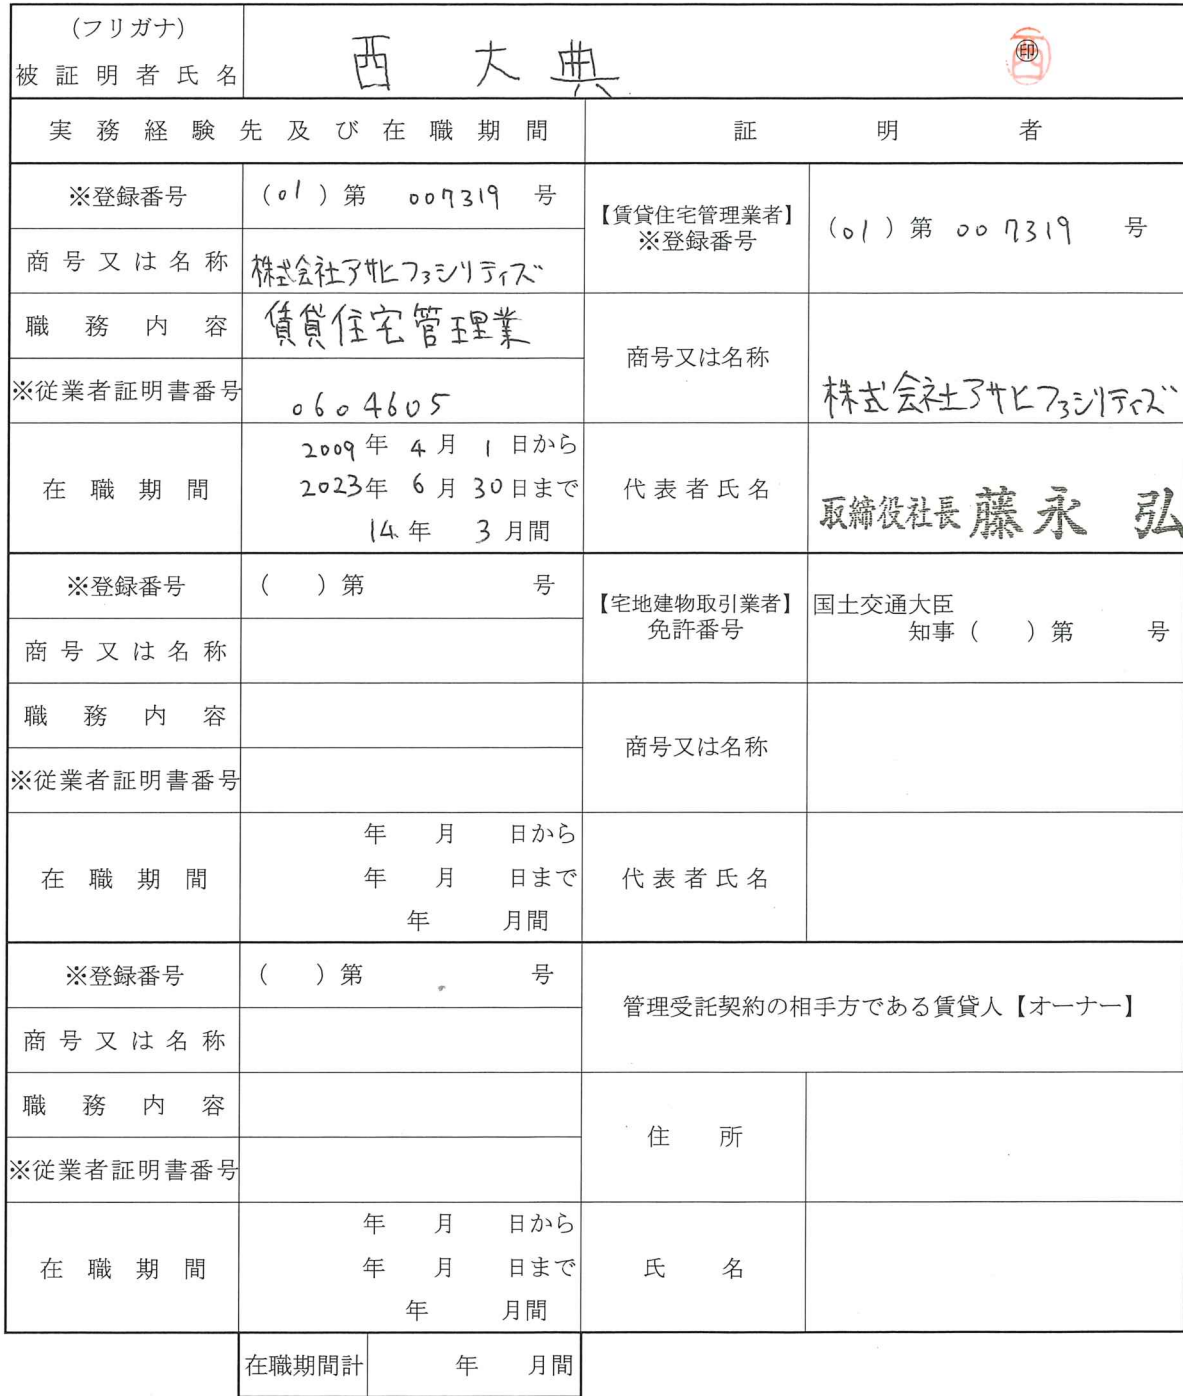 (フリガナ)
被証明者氏名 西 大典 ㊞
実務経験先及び在職期間 証明者
※登録番号 (01)第 007319 号
【賃貸住宅管理業者】
※登録番号 (01)第 007319 号
商号又は名称 株式会社アサヒファシリティズ
職務内容 賃貸住宅管理業
商号又は名称 株式会社アサヒファシリティズ
※従業者証明書番号 0604605
在職期間 2009年 4月 1日から
2023年 6月 30日まで
14年 3月間
代表者氏名 取締役社長 藤永 弘
※登録番号 ( )第 号
【宅地建物取引業者】
免許番号
国土交通大臣
知事( )第 号
商号又は名称
職務内容
商号又は名称
※従業者証明書番号
在職期間 年 月 日から
年 月 日まで
年 月間
代表者氏名
※登録番号 ( )第 号
管理受託契約の相手方である賃貸人【オーナー】
商号又は名称
職務内容
住所
※従業者証明書番号
在職期間 年 月 日から
年 月 日まで
年 月間
氏名
在職期間計 年 月間